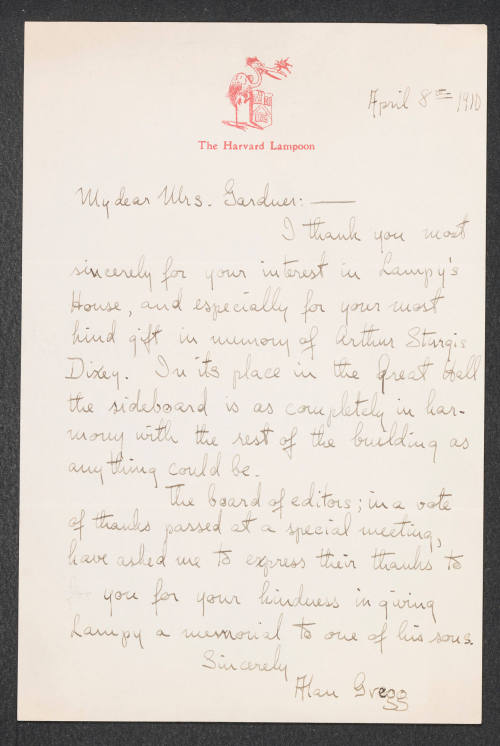 April 8th 1910
The Harvard Lampoon
My dear Mrs. Gardner:—
I thank you most
sincerely for your interest in Lampy's
House, and especially for your most
kind gift in memory of Arthur Sturgis
Dixey. In its place in the Great Hall
the sideboard is as completely in har-
mony with the rest of the building as
anything could be.
The board of editors; in a vote
of thanks passed at a special meeting,
have asked me to express their thanks to
you for your kindness in giving
Lampy a memorial to one of his sons.
Sincerely
Alan Gregg